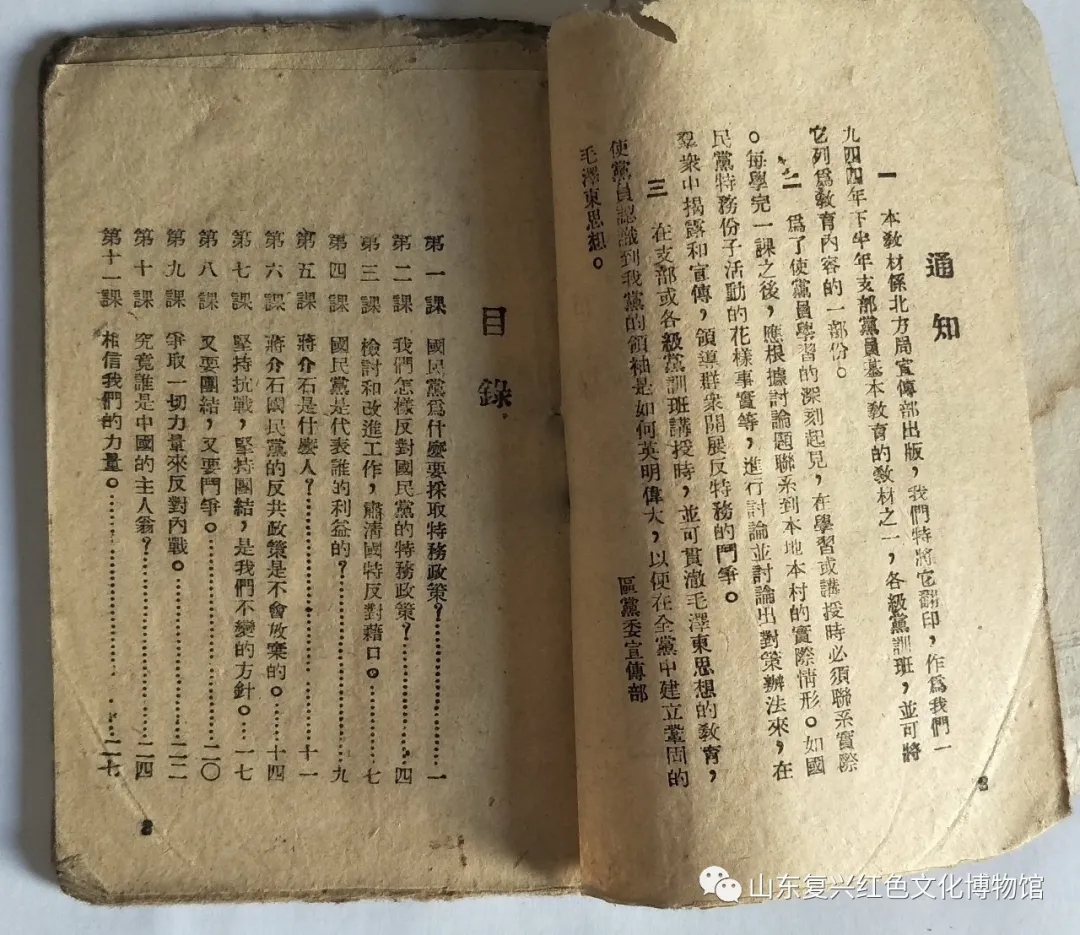 通知
一　本教材係北方局宣傳部出版，我們特將它翻印，作爲我們一
九四四年下半年支部黨員基本教育的教材之一，各級黨訓班，並可將
它列爲教育內容的一部份。
二　爲了使黨員學習的深刻起見，在學習或講授時必須聯系實際
。每學完一課之後，應根據討論題聯系到本地本村的實際情形。如國
民黨特務份子活動的花樣事實等，進行討論並討論出對策辦法來，在
羣衆中揭露和宣傳，領導群衆開展反特務的鬥爭。
三　在支部或各級黨訓班講授時，並可貫澈毛澤東思想的教育，
使黨員認識到我黨的領袖是如何英明偉大，以便在全黨中建立鞏固的
毛澤東思想。
區黨委宣傳部
目錄
第一課　國民黨爲什麼要採取特務政策？…………一
第二課　我們怎樣反對國民黨的特務政策？…………四
第三課　檢討和改進工作，肅清國特反對藉口。…………七
第四課　國民黨是代表誰的利益的？…………九
第五課　蔣介石是什麼人？…………十一
第六課　蔣介石國民黨的反共政策是不會放棄的。…………十四
第七課　堅持抗戰，堅持團結，是我們不變的方針。…………一七
第八課　又要團結，又要鬥爭。…………二〇
第九課　爭取一切力量來反對內戰。…………二二
第十課　究竟誰是中國的主人翁？…………二四
第十一課　相信我們的力量。…………二七
2
山东复兴红色文化博物馆